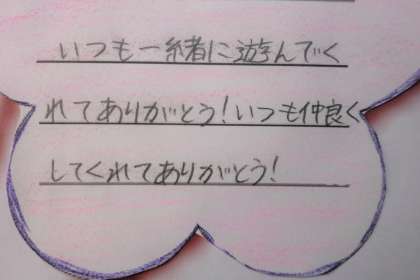 いつも一緒に遊んでく
れてありがとう！いつも仲良く
してくれてありがとう！